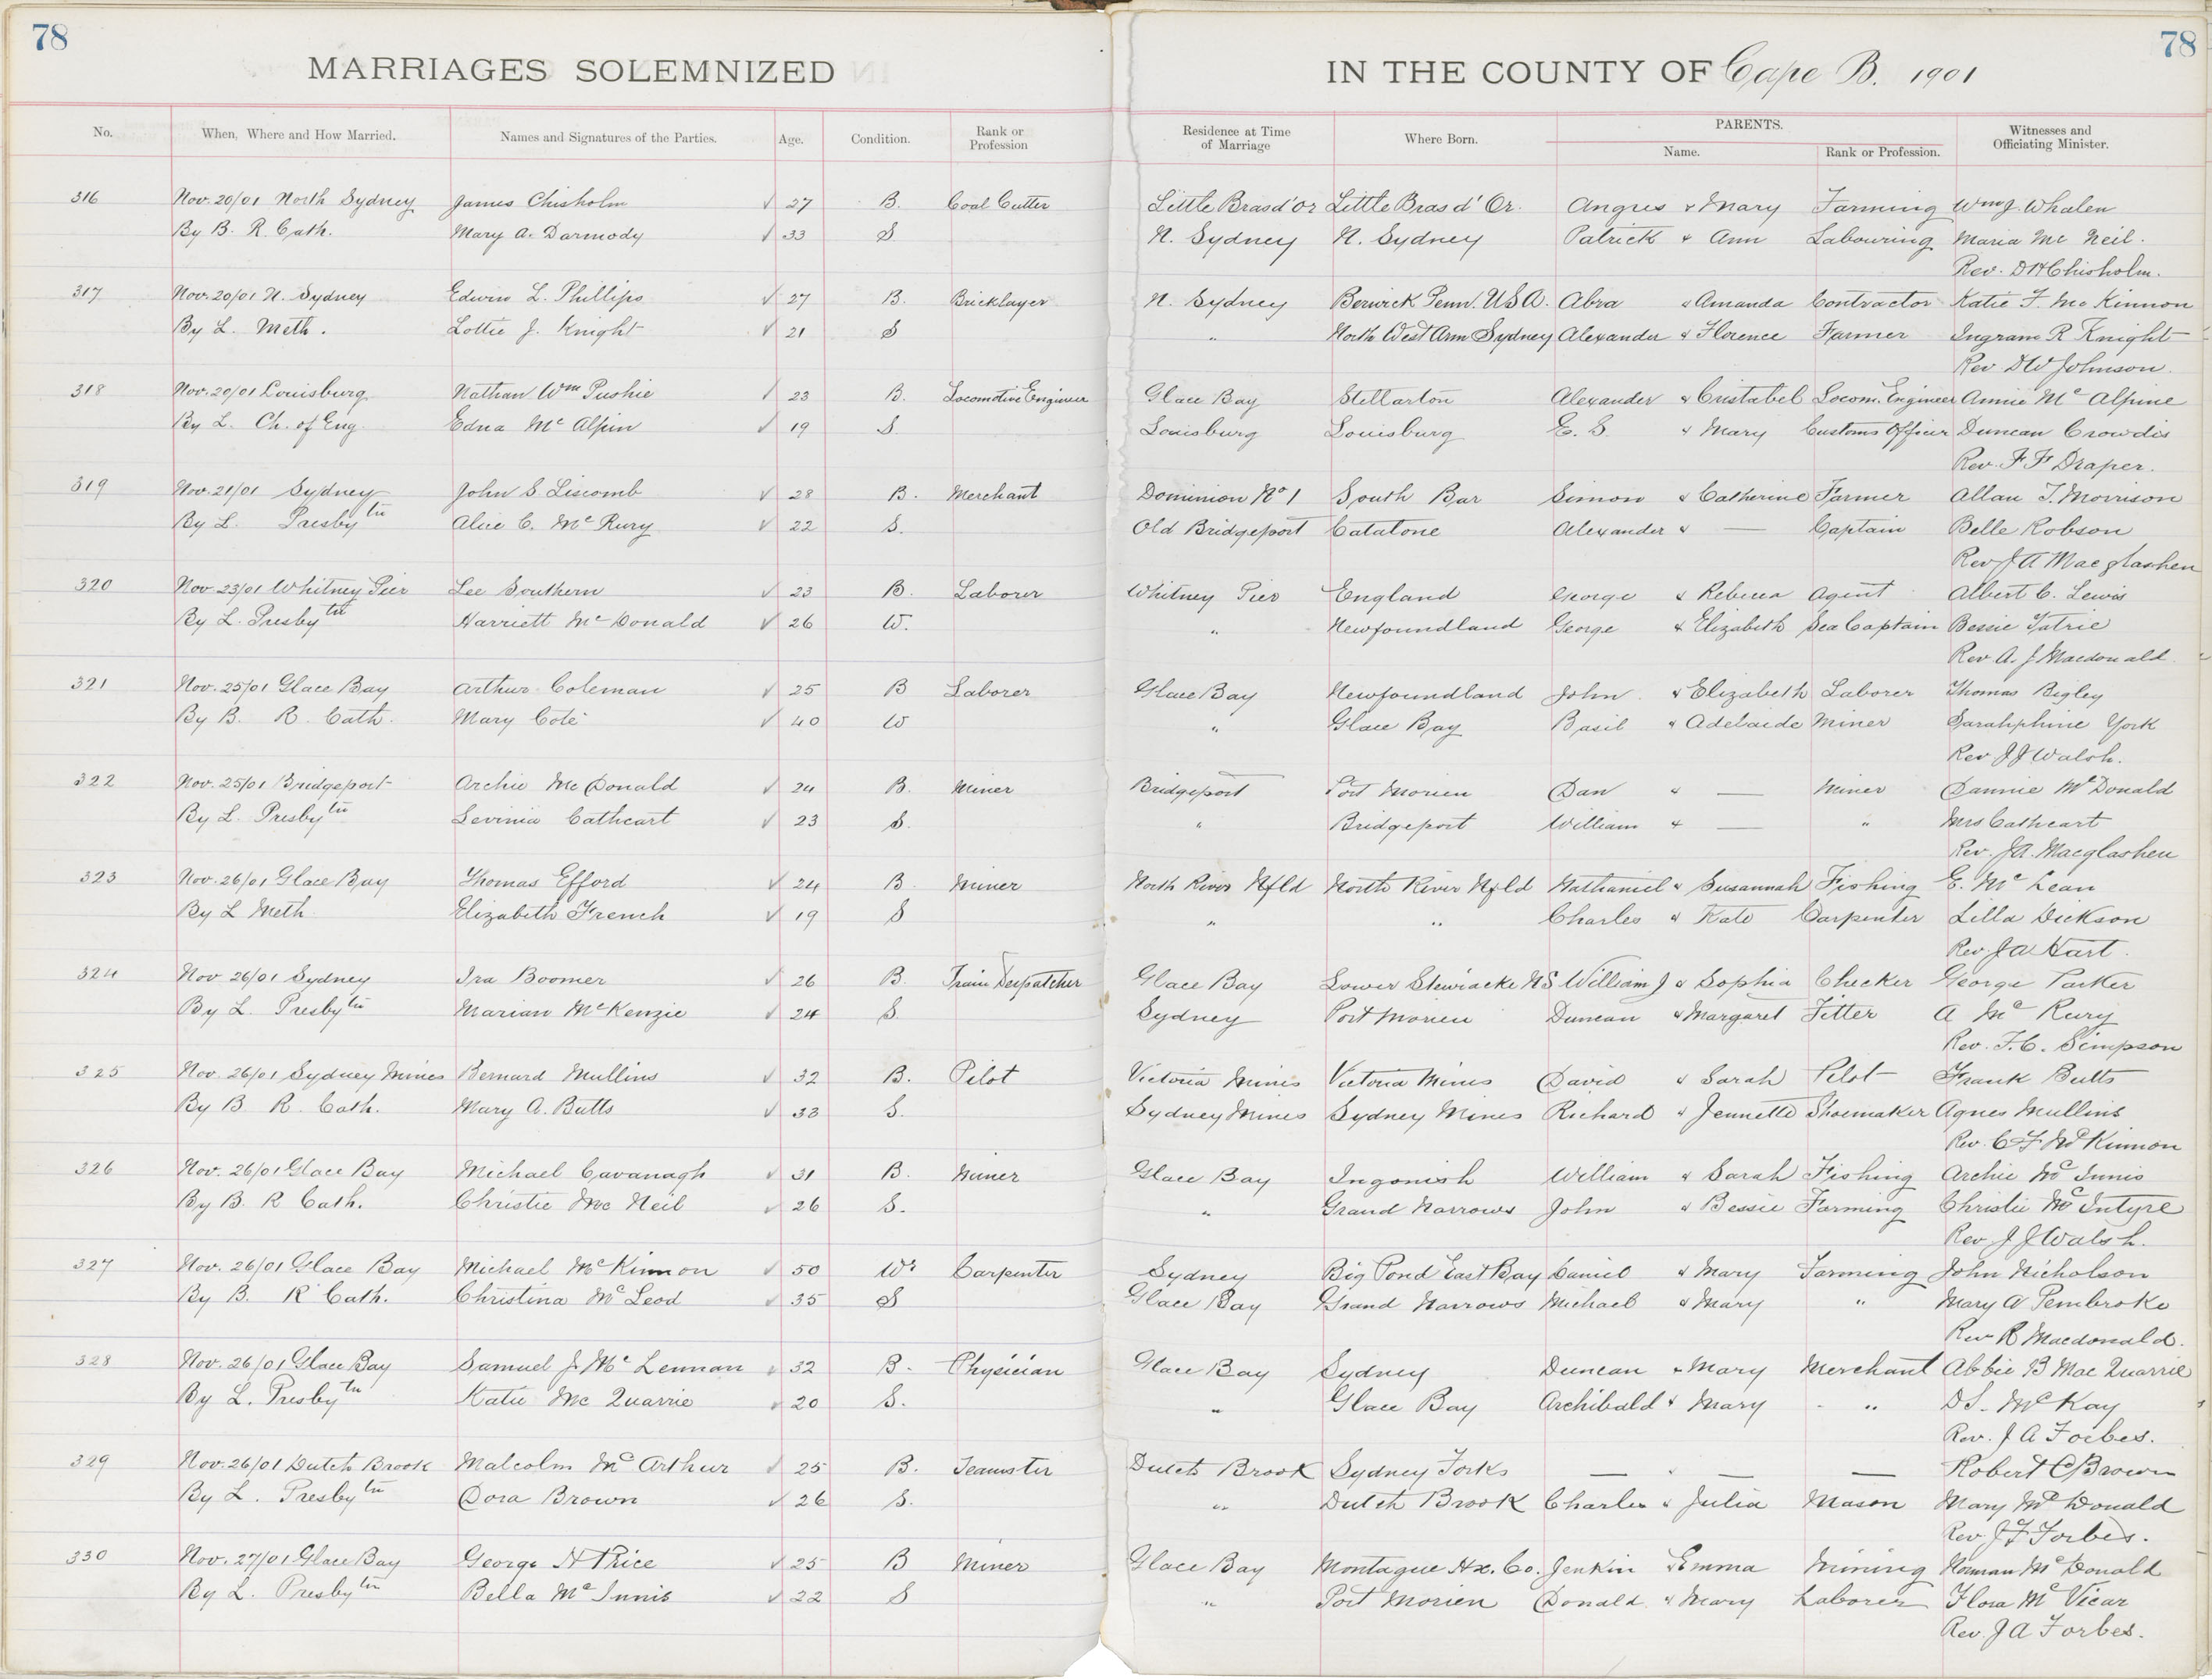 78
78
MARRIAGES SOLEMNIZED IN THE COUNTY OF Cape B. 1901
No. When, Where and How Married. Names and Signatures of the Parties. Age. Condition. Rank or Profession Residence at Time of Marriage Where Born. PARENTS. Name. Rank or Profession. Witnesses and Officiating Minister.
316 Nov. 20/01 North Sydney James Chisholm √ 27 B. Coal Cutter Little Bras d'or Little Bras d'Or. Angus & Mary Farming Wm J. Whalen
By B. R. Cath. Mary A. Darmody √ 33 S N. Sydney N. Sydney Patrick & Ann Labouring Maria Mc Neil.
Rev. D H Chisholm.
317 Nov. 20/01 N. Sydney Edwin L. Phillips √ 27 B. Bricklayer N. Sydney Berwick Penn. U S A. Abra & Amanda Contractor Katie F. Mc Kinnon
By L. Meth. Lottie J. Knight √ 21 S " North West Arm Sydney Alexander & Florence Farmer Ingram R Knight
Rev D W Johnson.
318 Nov. 20/01 Louisburg Nathan Wm Pushie √ 23 B. Locomotive Engineer Glace Bay Stellarton Alexander & Cristabel Locom. Engineer Annie Mc Alpine
By L. Ch. of Eng. Edna Mc Alpin √ 19 S. Louisburg Louisburg E. S. & Mary Customs Officer Duncan Crowdis
Rev. F F Draper.
319 Nov. 21/01 Sydney John S Liscomb √ 28 B. Merchant Dominion No 1 South Bar Simon & Catherine Farmer Allan T. Morrison
By L. Presbytn Alice C. McRury √ 22 S. Old Bridgeport Catalone Alexander & — Captain Belle Robson
Rev J A Macglashen
320 Nov 23/01 Whitney Pier Lee Southern √ 23 B. Laborer Whitney Pier England George & Rebecca Agent Albert C. Lewis
By L. Presbytn Harriett McDonald √ 26 W. " Newfoundland George & Elizabeth Sea Captain Bessie
Rev A. J Macdonald
321 Nov. 25/01 Glace Bay Arthur Coleman √ 25 B Laborer Glace Bay Newfoundland John & Elizabeth Laborer Thomas Bigley
By B. R. Cath. Mary Cote √ 40 W " Glace Bay Basil & Adelaide Miner Sarahphine York
Rev J J Walsh.
322 Nov. 25/01 Bridgeport Archie Mc Donald √ 24 B. Miner Bridgeport Port Morien Dan & — Miner Dannie McDonald
By L. Presbytn Levinia Cathcart √ 23 S. " Bridgeport William & — " Mrs Cathcart
Rev. J A. Macglashen
323 Nov. 26/01 Glace Bay Thomas Efford √ 24 B. Miner North River Nfld North River Nfld Nathaniel & Susannah Fishing E. McLean
By L Meth. Elizabeth French √ 19 S " " Charles & Kate Carpenter Lilla Dickson
Rev J A Hart.
324 Nov 26/01 Sydney Ira Boomer √ 26 B. Train Despatcher Glace Bay Lower Stewiacke N S William J & Sophia Checker George Parker
By L. Presbytn Marian McKenzie √ 24 S. Sydney Port Morien Duncan & Margaret Fitter A McRury
Rev. F. C. Simpson
325 Nov. 26/01 Sydney Mines Bernard Mullins √ 32 B. Pilot Victoria Mines Victoria Mines David & Sarah Pilot Frank Butts
By B R. Cath. Mary A. Butts √ 33 S. Sydney Mines Sydney Mines Richard & Jennette Shoemaker Agnes Mullins
Rev. C F McKinnon
326 Nov. 26/01 Glace Bay Michael Cavanagh √ 31 B. Miner Glace Bay Ingonish William & Sarah Fishing Archie McInnis
By B. R Cath. Christie Mc Neil √ 26 S. " Grand Narrows John & Bessie Farming Christie McIntyre
Rev J J Walsh.
327 Nov. 26/01 Glace Bay Michael McKinnon √ 50 Wr Carpenter Sydney Big Pond East Bay Daniel & Mary Farming John Nicholson
By B. R Cath. Christina McLeod √ 35 S Glace Bay Grand Narrows Michael & Mary " Mary A Pembroke
Rev R Macdonald.
328 Nov. 26/01 Glace Bay Samuel J McLennan √ 32 B. Physician Glace Bay Sydney Duncan & Mary Merchant Abbie B Mac Quarrie
By L. Presbytn Katie Mc Quarrie √ 20 S. " Glace Bay Archibald & Mary " D S. McKay
Rev. J A Forbes.
329 Nov. 26/01 Dutch Brook Malcolm McArthur √ 25 B. Teamster Dutch Brook Sydney Forks — & — — Robert C Brown
By L. Presbytn Dora Brown √ 26 S. " Dutch Brook Charles & Julia Mason Mary McDonald
Rev. J F Forbes.
330 Nov. 27/01 Glace Bay George H Price √ 25 B Miner Glace Bay Montague Hx. Co. Jenkin & Emma Mining Norman McDonald
By L. Presbytn Bella McInnis √ 22 S " Port Morien Donald & Mary Laborer Flora McVicar
Rev. J A Forbes.